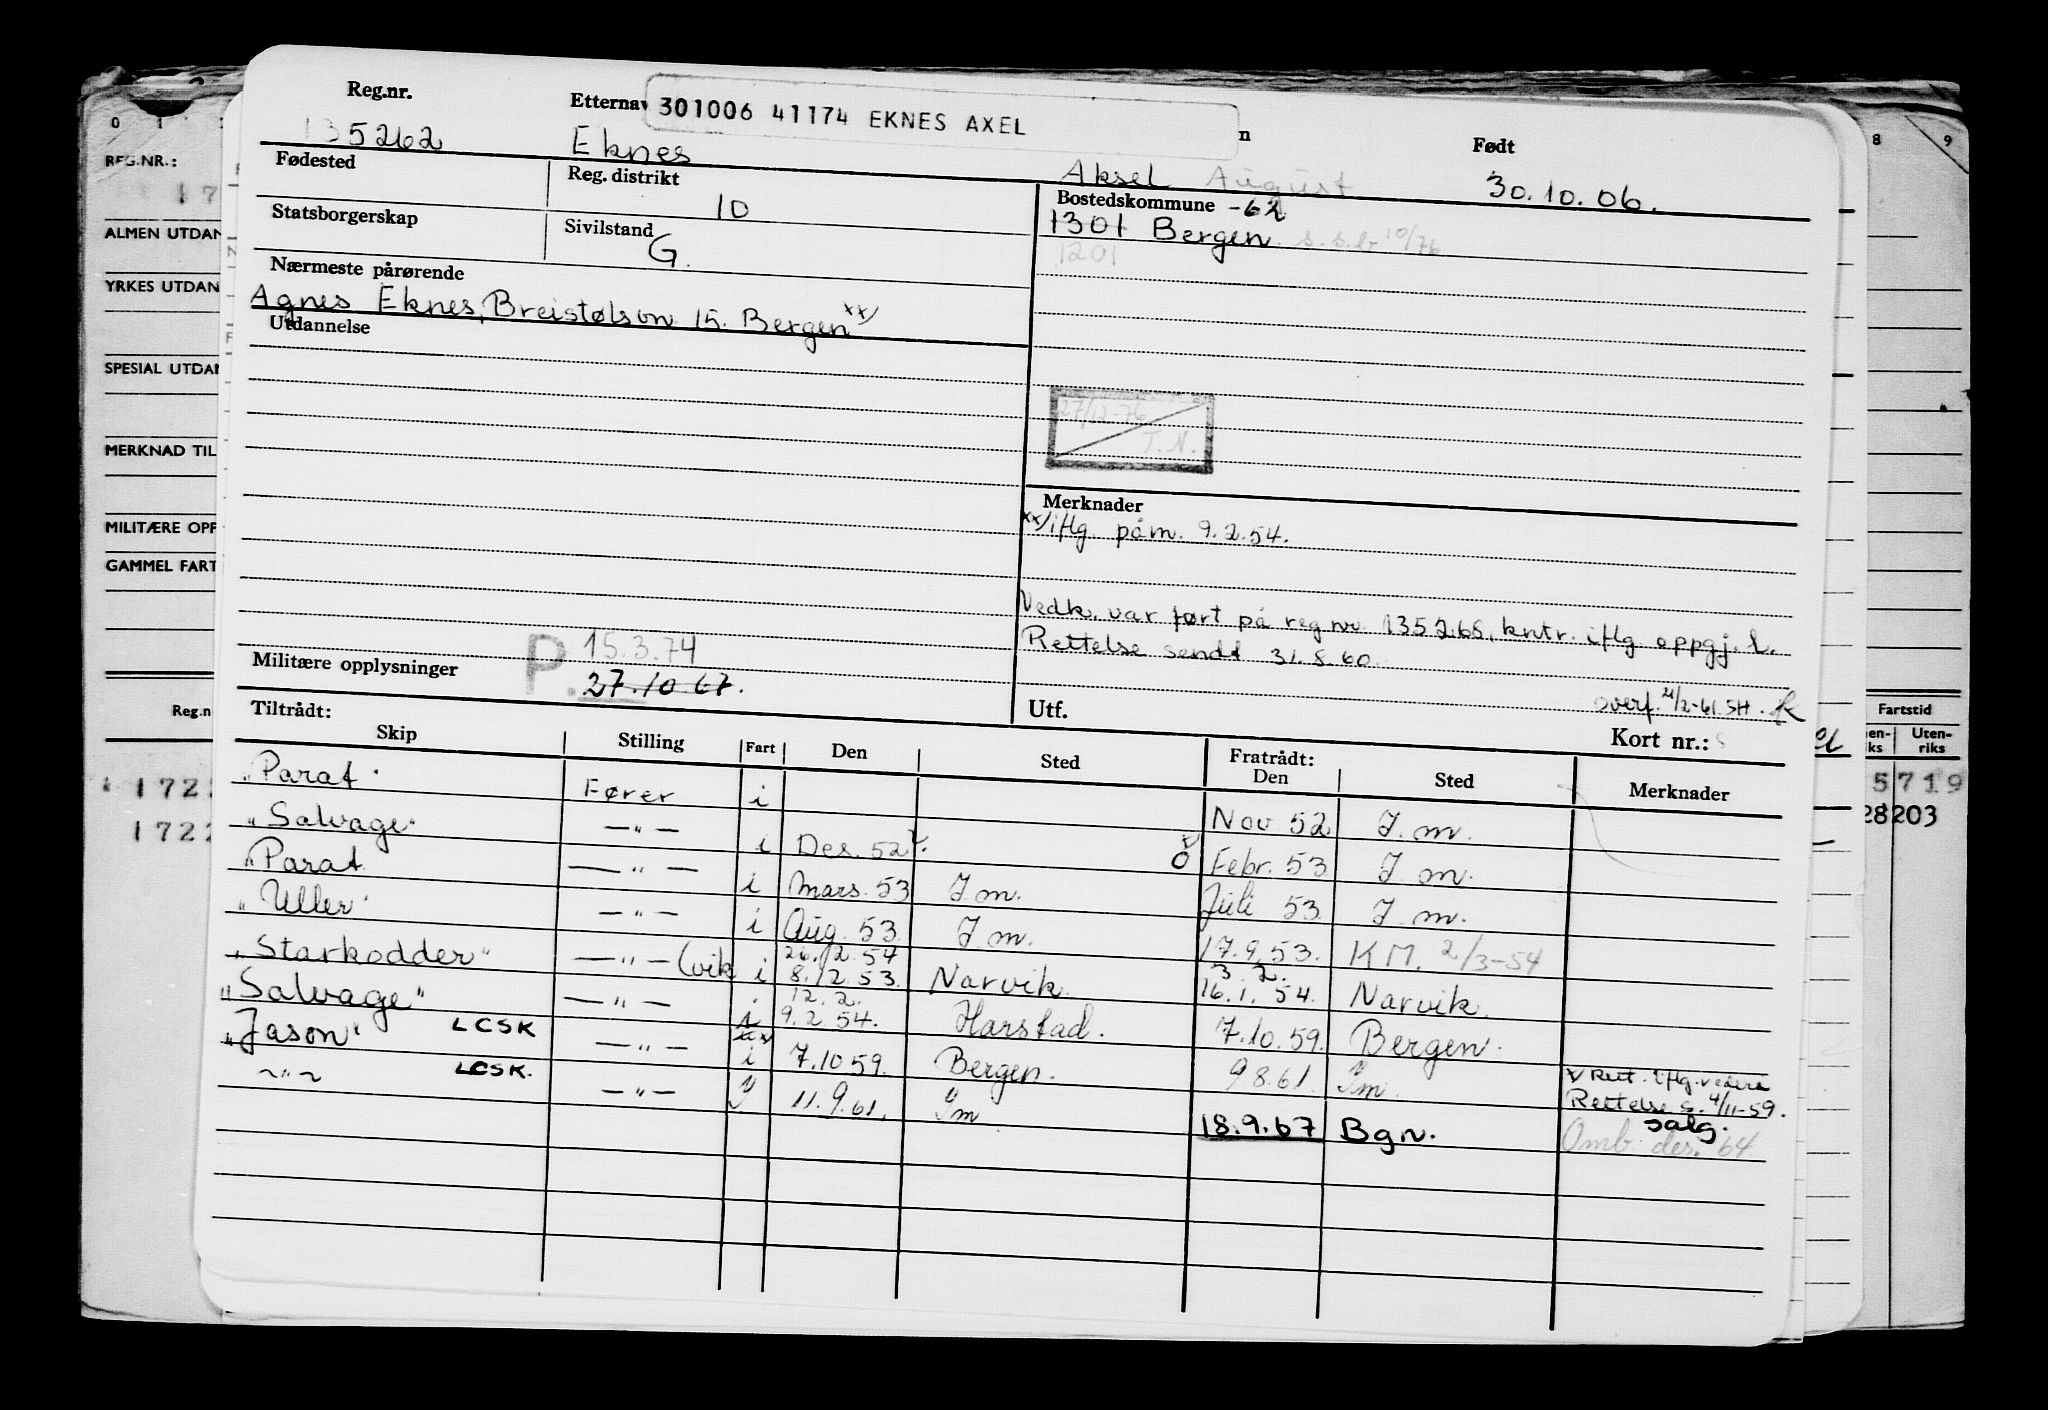 Reg.nr. Etternav 301006 41174 EKNES AXEL n Født
135262 Eknes Aksel August 30.10.06.
Fødested Reg. distrikt Bostedskommune -62
10 1301 Bergen s.s.b 10/76
Statsborgerskap Sivilstand 1201
G.
Nærmeste pårørende
Agnes Eknes, Breistølsvn 15. Bergen xx/
Utdannelse
27/12-76
T.N.
Merknader
xx/ iflg. påm. 9.2.54.
Vedk. var ført på reg nr. 135268, kntr. iflg oppgj. l.
Rettelse sendt 31.8.60.
P. 15.3.74
Militære opplysninger 27.10.67.
overf. 21/2-61 SH. K
Tiltrådt: Utf. Kort nr.:
Skip Stilling Fart Den Sted Fratrådt: Den Sted Merknader
"Parat" Fører i Nov 52 I m.
"Salvage" —"— i Des. 52 Febr. 53 I m.
"Parat —"— i Mars. 53 I m. Juli 53 I m.
"Uller" —"— i Aug. 53 I m. 17.9.53. K M. 2/3-54
26.12.54 3 2.
"Starkodder" —"— (vik i 8.12.53. Narvik 16.1.54. Narvik.
12.2.
"Salvage" —"— i 9.2.54. Harstad. 7.10.59. Bergen.
"Jason" LCSK —"— i 7.10.59. Bergen. 9 8.61. Im. x Rett. iflg. vedere
Rettelse s. 4/11-59.
—"— LCSK. —"— y 11.9.61. Im 18.9.67 Bgn. salg.
Omb. des. 64
0 1
REG.NR.:
17
ALMEN UTDAN
YRKES UTDAN
SPESIAL UTDAN
MERKNAD TIL
MILITÆRE OPP
GAMMEL FART
Reg.n
1722
1722
8 9
Fartstid
en-ks Uten-riks
5719
28203